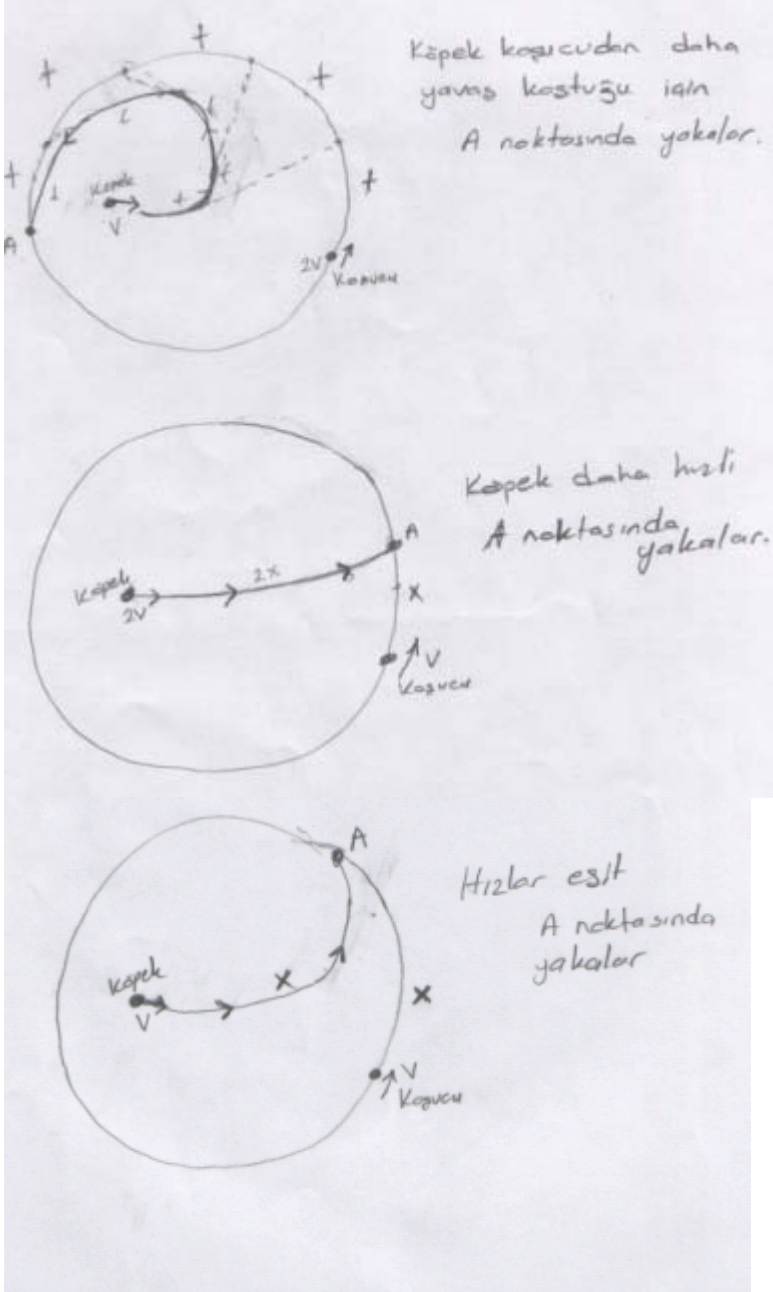 Köpek koşucudan daha
yavaş koştuğu için
A noktasında yakalar.
t
t
t
t
t
Köpek
V
A
2V
Koşucu
Köpek daha hızlı
A noktasında
yakalar.
A
Köpek
2V
2x
x
V
Koşucu
Hızlar eşit
A noktasında
yakalar
A
Köpek
V
x
x
V
Koşucu